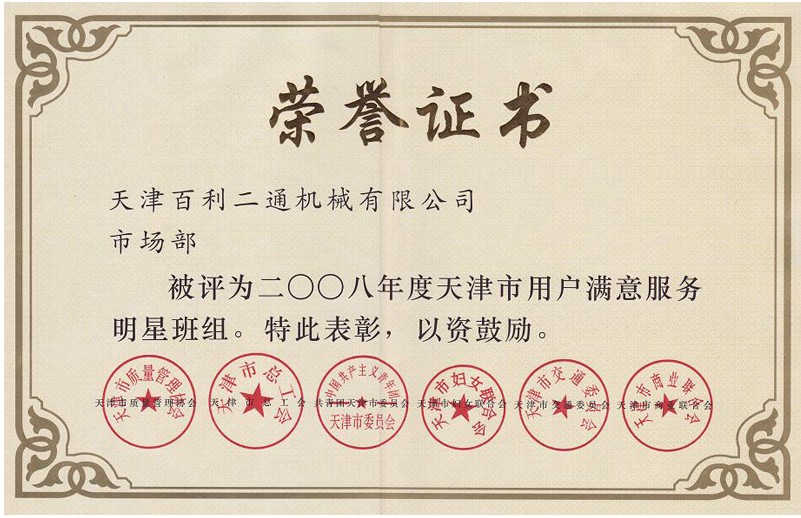 荣誉证书
天津百利二通机械有限公司
市场部
被评为二〇〇八年度天津市用户满意服务
明星班组。特此表彰，以资鼓励。
天津市质量管理协会 天津市总工会 共青团天津市委员会 天津市妇女联合会 天津市交通委员会 天津市商业联合会
天津市质量管理协会
天津市总工会
中国共产主义青年团
天津市委员会
天津市妇女联合会
天津市交通委员会
天津市商业联合会